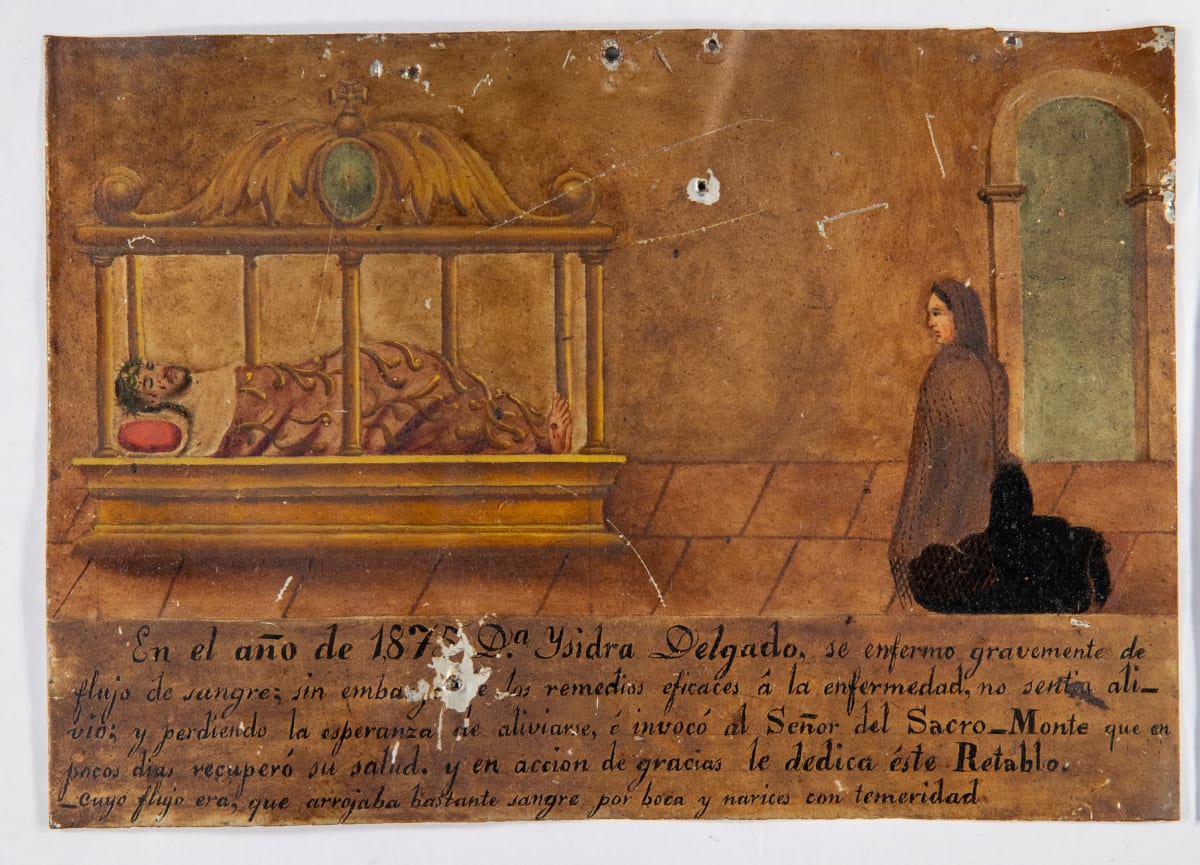 En el año de 187 D.ª Ysidra Delgado, se enfermo gravemente de
flujo de sangre; sin embargo e los remedios eficaces á la enfermedad, no sentia ali-
vio; y perdiendo la esperanza de aliviarse, é invocó al Señor del Sacro-Monte que en
pocos dias recuperó su salud. y en accion de gracias le dedica éste Retablo.
-cuyo flujo era, que arrojaba bastante sangre por boca y narices con temeridad